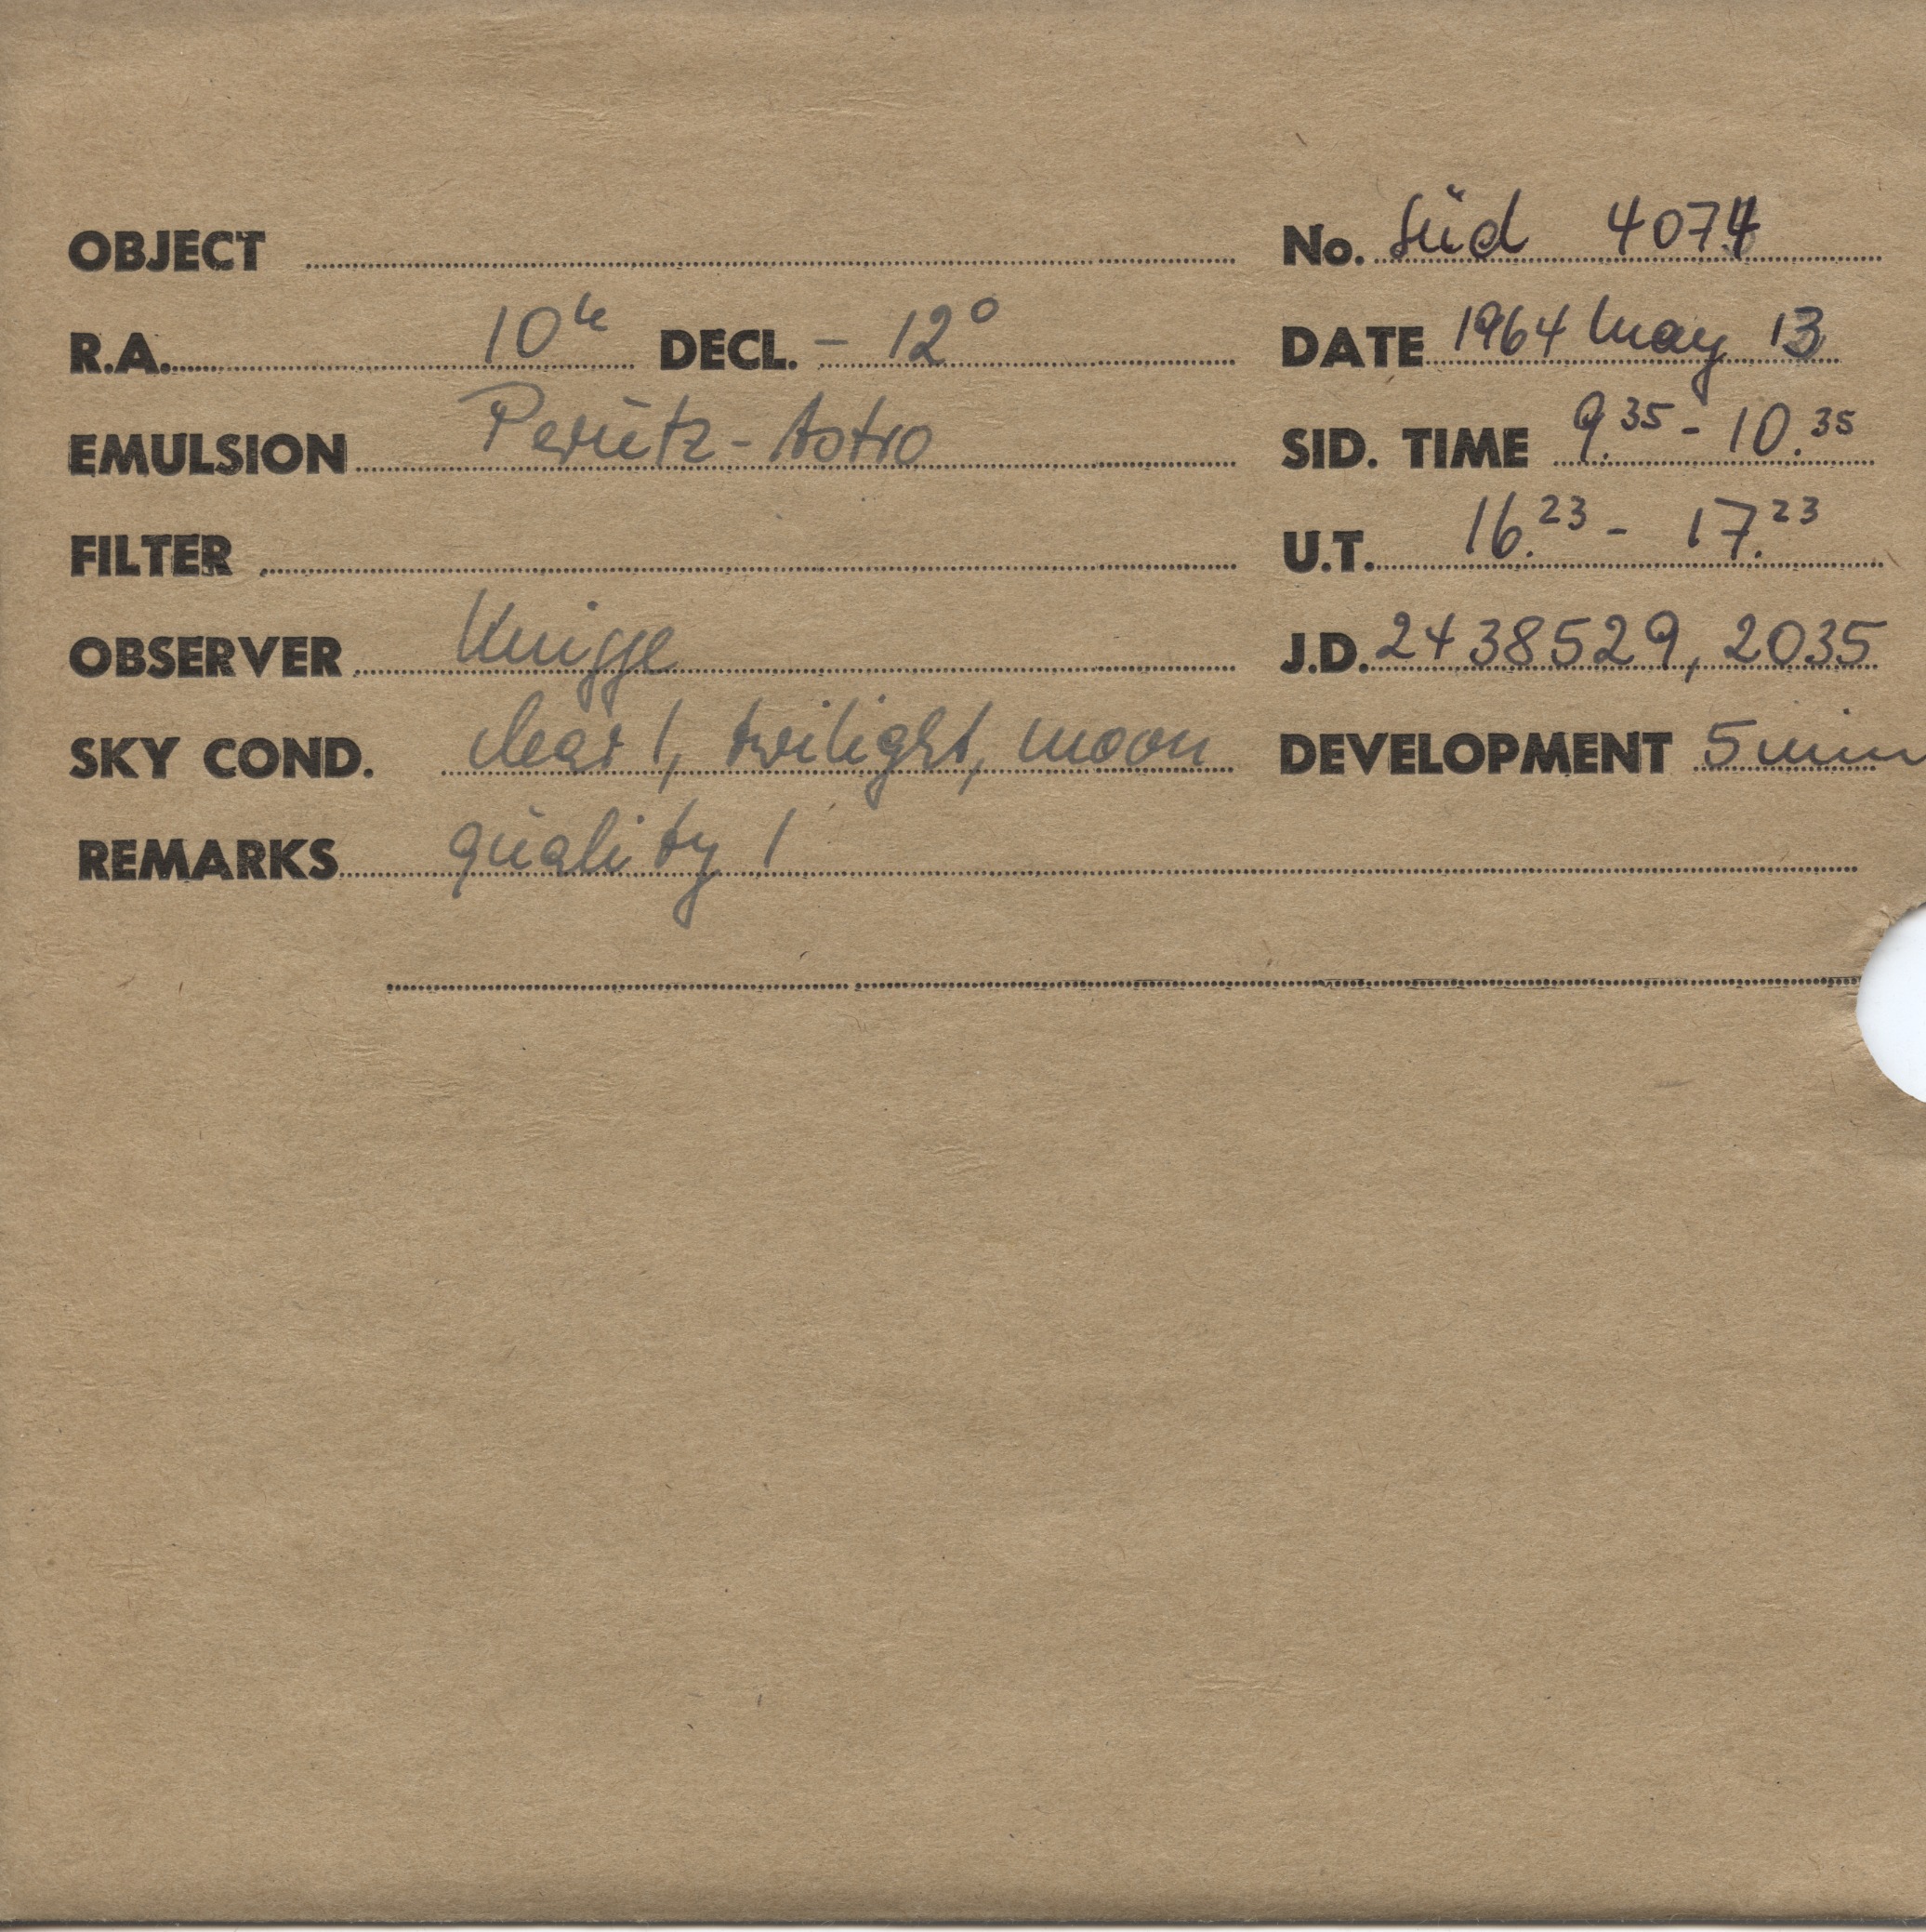 OBJECT No. Süd 4074
R.A. 10h DECL. - 12°
DATE 1964 May 13
EMULSION Perutz-Astro
SID. TIME 9.35 - 10.35
FILTER
U.T. 16.23 - 17.23
OBSERVER Knigge
J.D. 2438529,2035
SKY COND. clear 1, twilight, moon
DEVELOPMENT 5 min
REMARKS quality 1